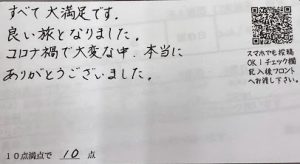 すべて大満足です。
良い旅となりました。
コロナ禍で大変な中、本当に
ありがとうございました。
スマホでも投稿
OK!チェック欄
記入後フロント
へお渡し下さい。
10点満点で 10 点